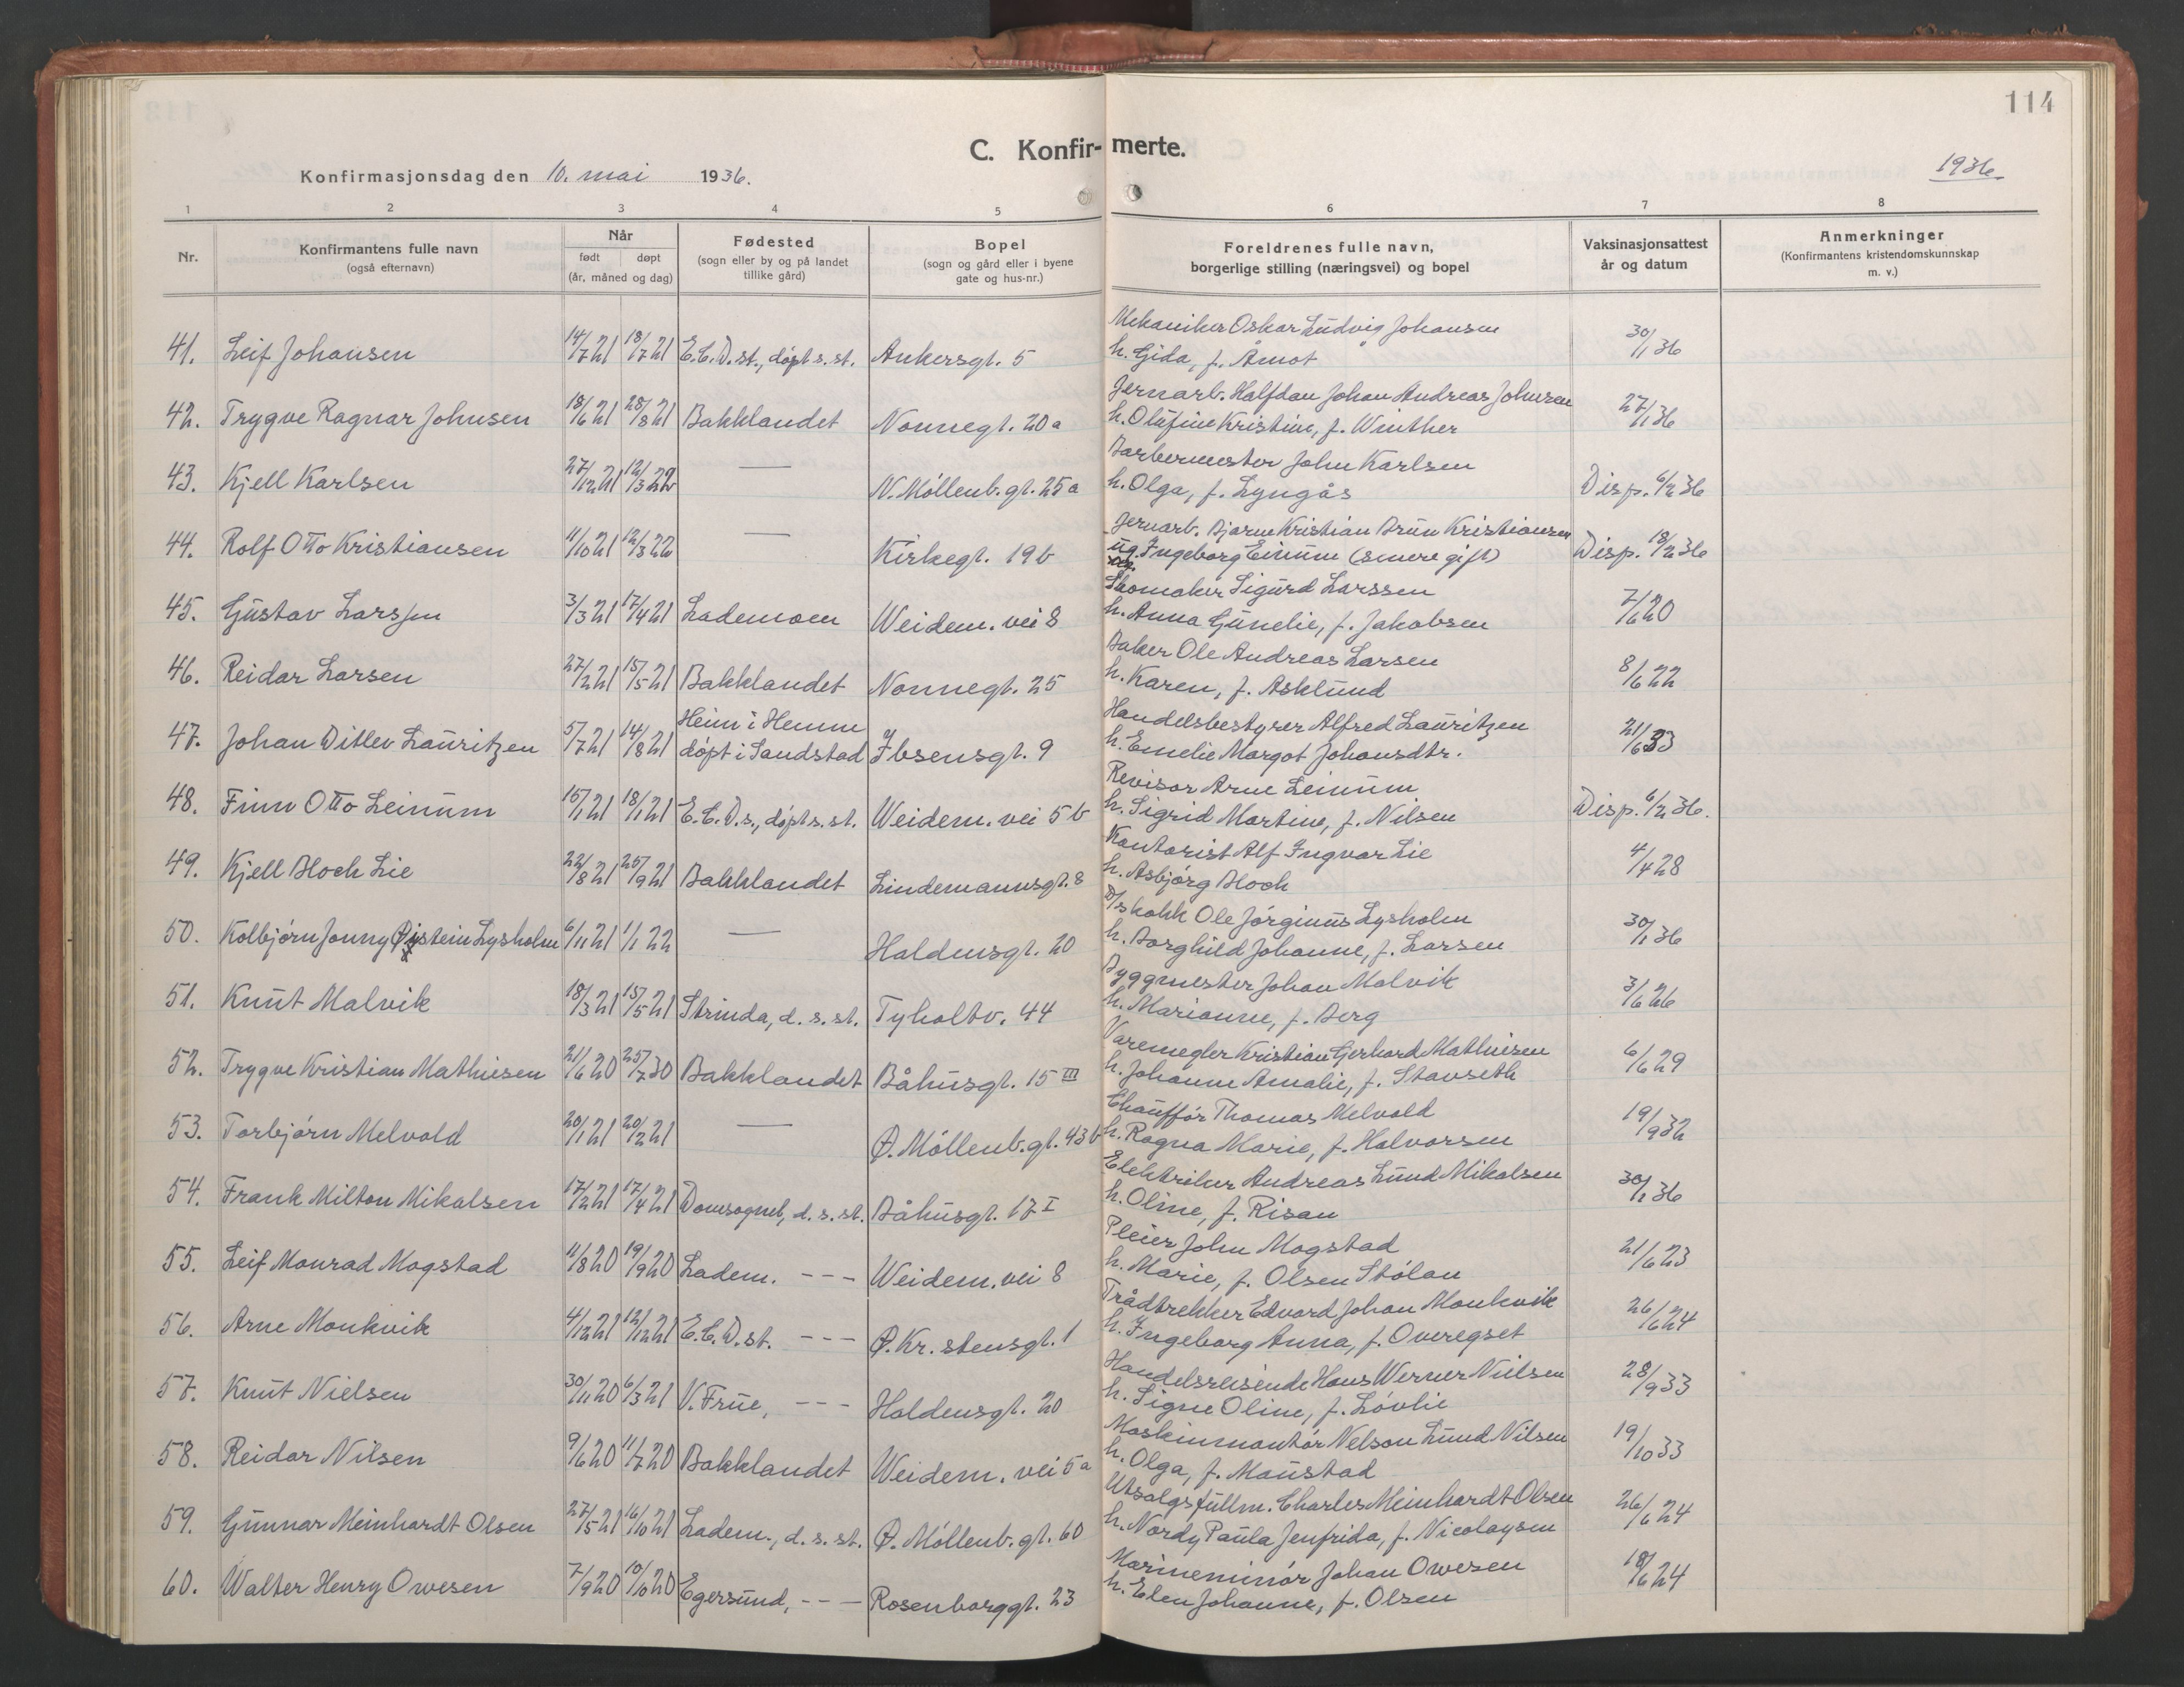 114
C. Konfirmerte.
Konfirmasjonsdag den 10. mai 1936.
1936
1 2 3 4 5 6 7 8
Nr. Konfirmantens fulle navn (også efternavn) Når født døpt (år, måned og dag) Fødested (sogn eller by og på landet tillike gård) Bopel (sogn og gård eller i byene gate og hus-nr.) Foreldrenes fulle navn, borgerlige stilling (næringsvei) og bopel Vaksinasjonsattest år og datum Anmerkninger (Konfirmantens kristendomskunnskap m. v.)
41. Leif Johansen 14/7 21 18/7 21 E.C.D.st., døpt s. st. Ankersgt. 5 Mekaniker Oskar Ludvig Johansen 30/1 36
h. Gida, f. Åmot
42. Trygve Ragnar Johnsen 18/6 21 28/8 21 Bakklandet Nonnegt. 20a Jernarb. Halfdan Johan Andreas Johnsen 27/1 36
h. Olufine Kristine, f. Winther
43. Kjell Karlsen 27/12 21 12/3 22 — N. Møllenb. gt. 25a Barbermester John Karlsen Disp. 6/2 36
h. Olga, f. Lyngås
44. Rolf Otto Kristiansen 11/10 21 12/3 22 — Kirkegt. 19b Jernarb. Bjarne Kristian Brun Kristiansen Disp. 18/2 36
ug. Ingeborg Einum (senere gift)
45. Gustav Larssen 3/3 21 17/4 21 Lademoen Weidem. vei 8 Skomaker Sigurd Larssen 7/6 20
h. Anna Gunelie, f. Jakobsen
46. Reidar Larsen 27/2 21 15/5 21 Bakklandet Nonnegt. 25 Baker Ole Andreas Larsen 8/6 22
h. Karen, f. Asklund
47. Johan Ditlev Lauritzen 5/7 21 14/8 21 Heim i Hemne døpt i Sandstad Ibsensgt. 9 Handelsbestyrer Alfred Lauritzen 21/6 33
h. Emelie Margot Johansdtr.
48. Finn Otto Leinum 15/1 21 18/1 21 E.C.D.s., døpt s. st. Weidem. vei 5b Revisor Arne Leinum Disp. 6/2 36.
h. Sigrid Martine, f. Nilsen
49. Kjell Bloch Lie 22/8 21 25/9 21 Bakklandet Lindemannsgt. 8 Kontorist Alf Ingvar Lie 4/4 28
h. Asbjørg Bloch
50. Kolbjørn Jonny Øistein Lysholm 6/11 21 1/1 22 — Haldensgt. 20 D/skokk Ole Jørginus Lysholm 30/1 36
h. Borghild Johanne, f. Larsen
51. Knut Malvik 18/3 21 15/5 21 Strinda, d. s. st. Tyholtv. 44 Byggmester Johan Malvik 3/6 26
h. Marianne, f. Berg
52. Trygve Kristian Mathiesen 21/6 20 25/7 30 Bakklandet Båhusgt. 15 III Varemegler Kristian Gerhard Mathiesen 6/6 29
h. Johanne Amalie, f. Stavseth
53. Torbjørn Melvold 20/1 21 20/2 21 — Ø. Møllenb. gt. 43b Chauffør Thomas Melvold 19/9 32
h. Ragna Marie, f. Halvorsen
54. Frank Milton Mikalsen 17/2 21 17/4 21 Domsognet, d. s. st. Båhusgt. 17 I Elektriker Andreas Lund Mikalsen 30/1 36
h. Oline, f. Risan
55. Leif Monrad Mogstad 11/8 20 19/9 20 Ladem. - - - Weidem. vei 8 Pleier John Mogstad 21/6 23
h. Marie, f. Olsen Stølan
56. Arne Monkvik 4/12 21 12/12 21 E.C.D.st. - - - Ø. Kr. stensgt. 1 Trådtrekker Edvard Johan Monkvik 26/6 24
h. Ingeborg Anna, f. Overegset
57. Knut Nielsen 30/11 20 6/3 21 V. Frue, - - - Haldensgt. 20 Handelsreisende Hans Werner Nielsen 28/9 33
h. Signe Oline, f. Løvlie
58. Reidar Nilsen 9/6 20 11/7 20 Bakklandet Weidem. vei 5a Maskinmontør Nelson Lund Nilsen 19/10 33
h. Olga, f. Maustad
59. Gunnar Meinhardt Olsen 27/5 21 16/10 21 Ladem., d. s. st. Ø. Møllenb. gt. 60 Utsalgsfullm. Charles Meinhardt Olsen 26/6 24
h. Nordy Paula Jenfrida, f. Nicolaysen
60. Walter Henry Owesen 7/9 20 10/10 20 Egersund, - - - Rosenborggt. 23 Marineminør Johan Owesen 18/6 24
h. Elen Johanne, f. Olsen